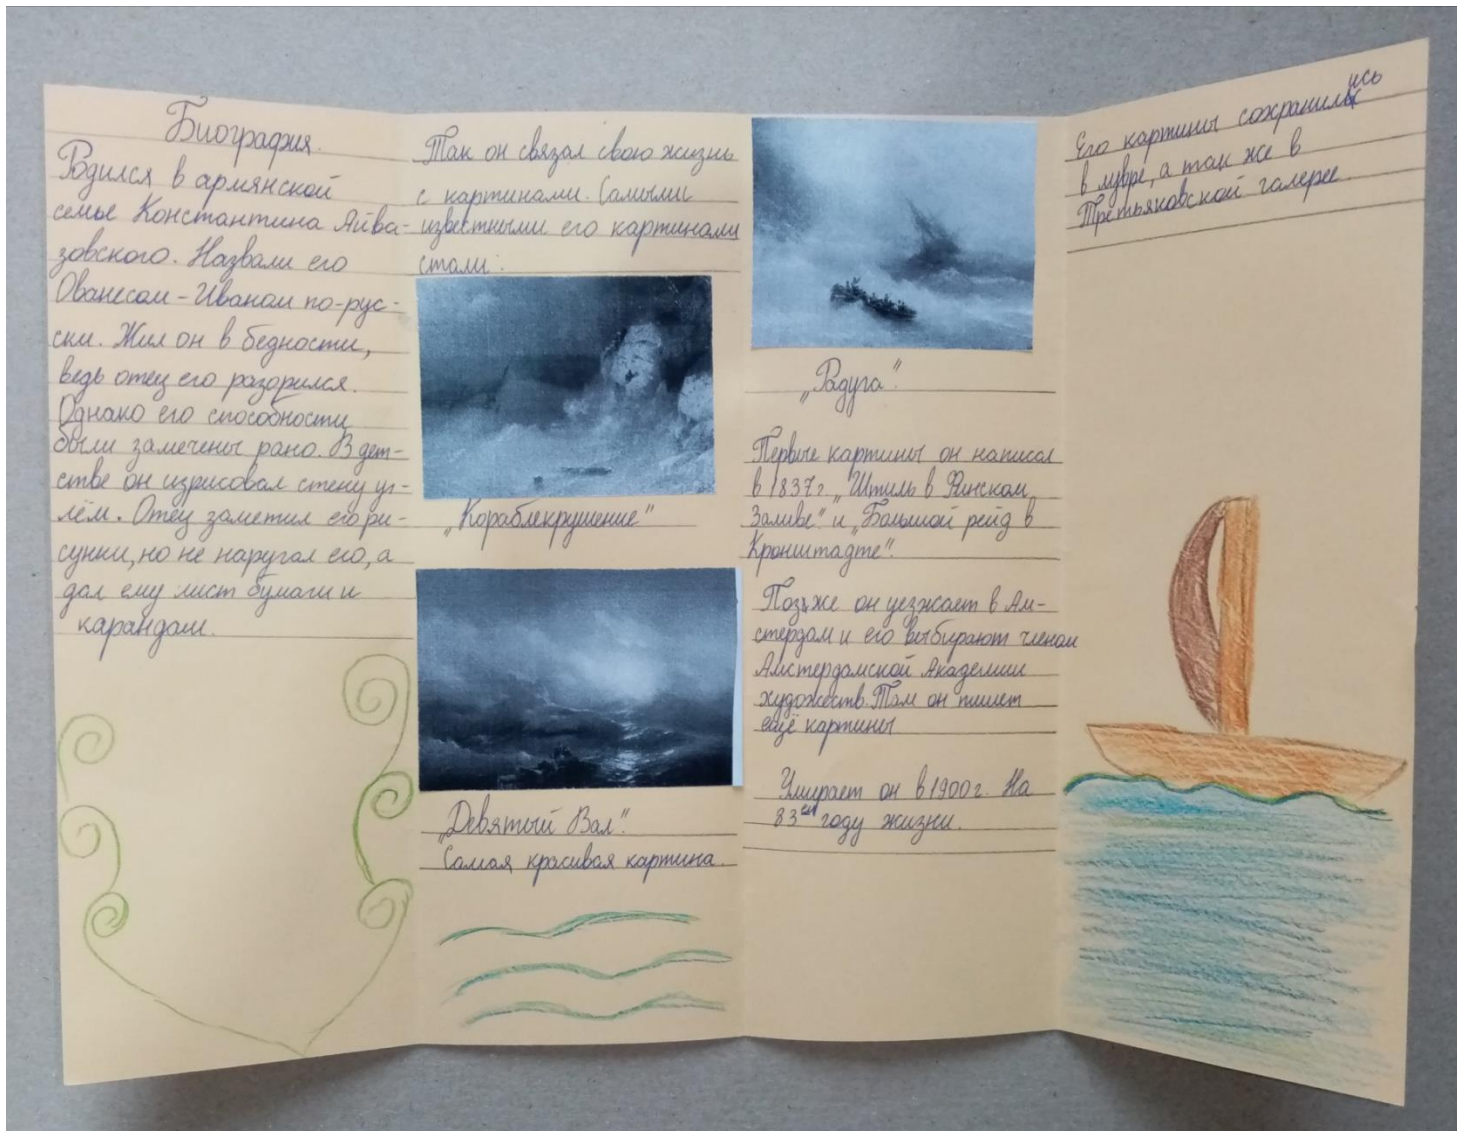 Биография.
Родился в армянской
семье Константина Айва-
зовского. Назвали его
Ованесом-Иваном по-рус-
ски. Жил он в бедности,
ведь отец его разорился.
Однако его способности
были замечены рано. В дет-
стве он изрисовал стену уг-
лём. Отец заметил его ри-
сунки, но не наругал его, а
дал ему лист бумаги и
карандаш.
Так он связал свою жизнь
с картинами. Самыми
известными его картинами
стали:
„Кораблекрушение"
„Девятый Вал".
Самая красивая картина.
„Радуга".
Первые картины он написал
в 1837г „Штиль в Финском
Заливе" и „Большой рейд в
Кронштадте".
Позже он уезжает в Ам-
стердам и его выбирают членом
Амстердамской Академии
художеств. Там он пишет
ещё картины
Умирает он в 1900г. На
83ем году жизни.
Его картины сохранились
в лувре, а так же в
Третьяковской галерее.